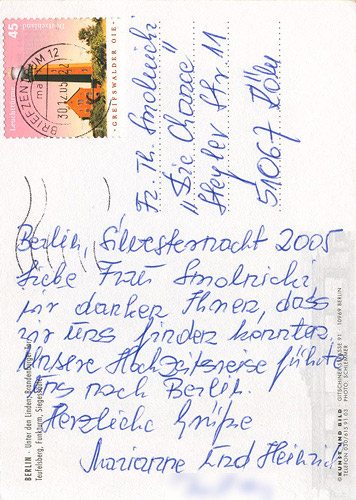 45
Deutschland
Leuchttürme
GREIFSWALDER OIE
BRIEFZENTRUM 12
30.12.05-22
Fr. Th. Smolnicki
"Die Chance"
Heyler Str. 11
51067 Köln
Berlin, Silvesternacht 2005
Liebe Frau Smolnicki
wir danken Ihnen, dass
wir uns finden konnten.
Unsere Hochzeitsreise führte
uns nach Berlin.
Herzliche Grüße
Marianne und Heinrich
BERLIN · Unter den Linden, Brandenburger Tor,
Teufelsberg, Funkturm, Siegessäule
©KUNST UND BILD · GITSCHINER STRASSE 91 · 10969 BERLIN
TELEFON 030/615 91 03 · PHOTO: SCHLEMMER